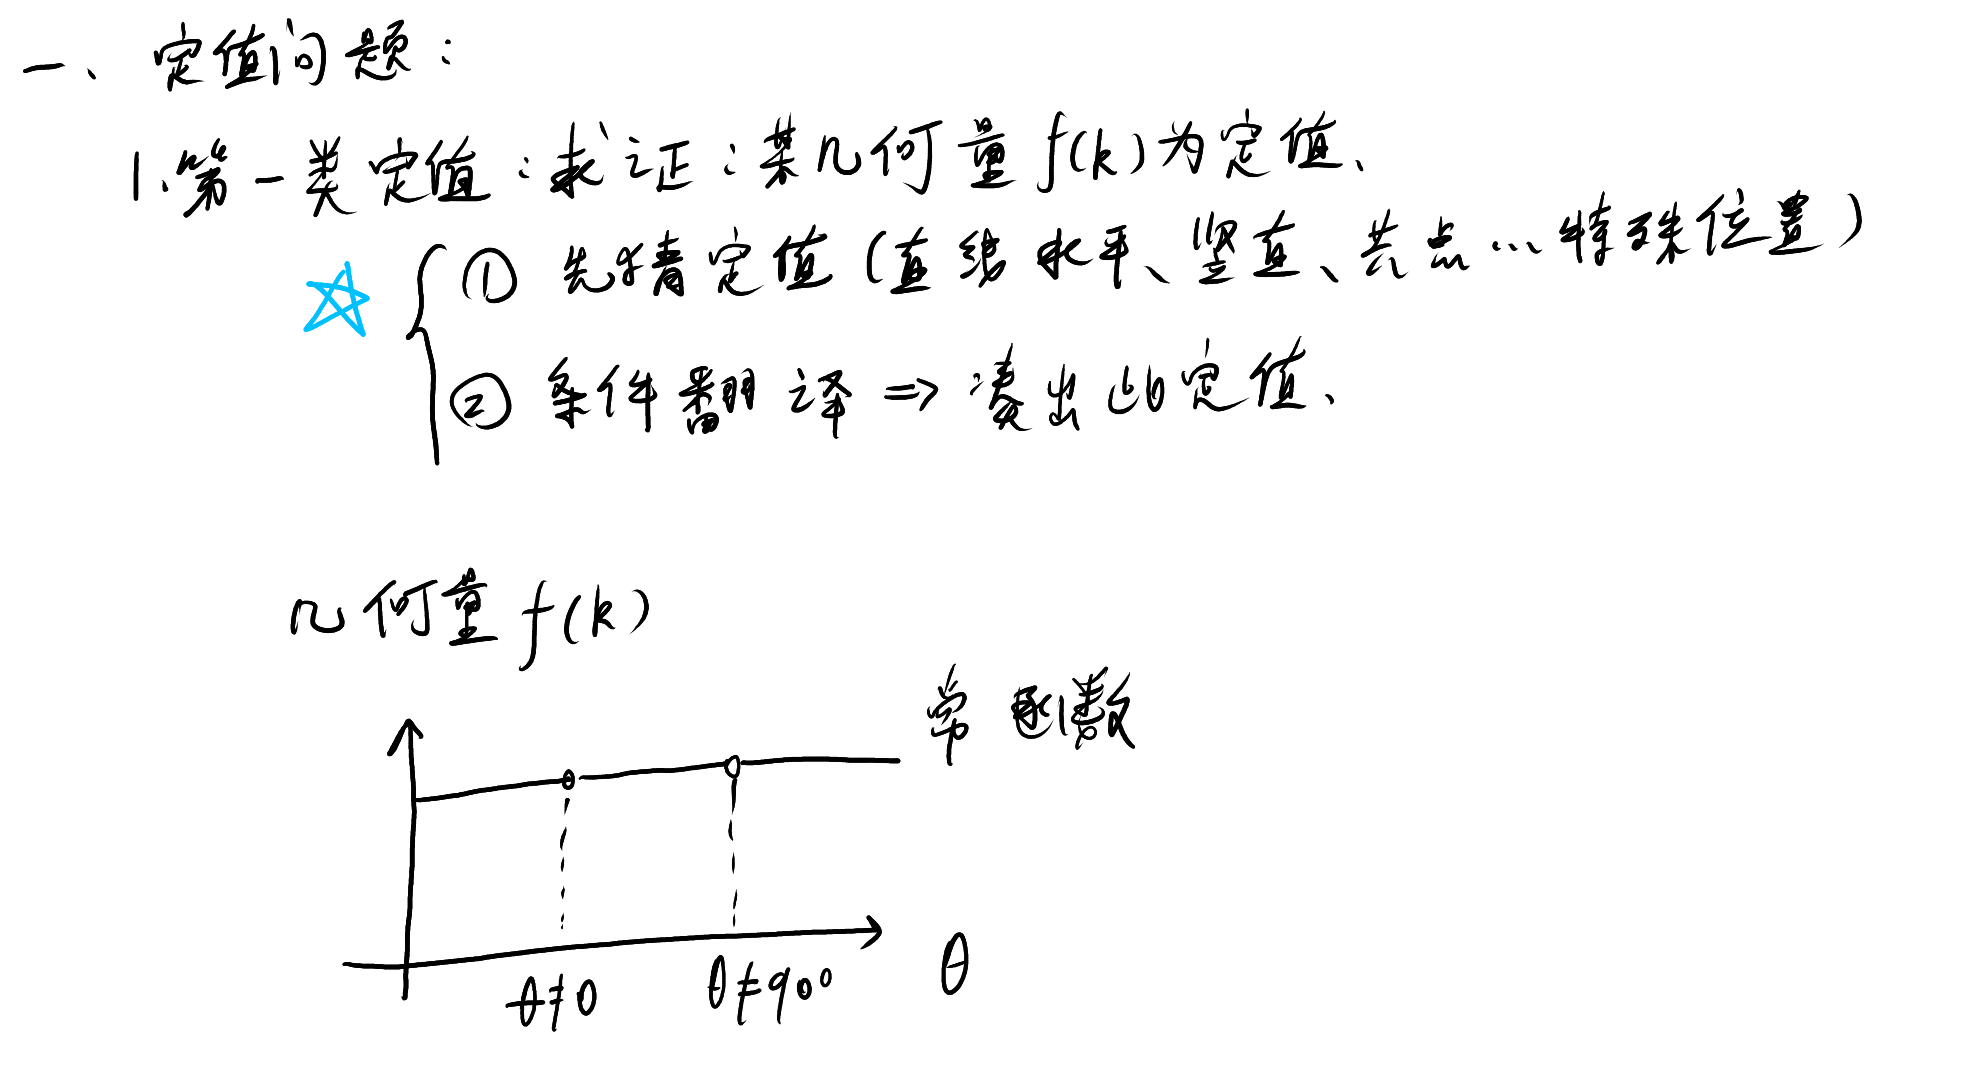 一、定值问题：
1.第一类定值：求证：某几何量 f(k)为定值、
① 先猜定值(直线水平、竖直、共点...特殊位置)
② 条件翻译 => 凑出此定值、
几何量 f(k)
常函数
θ≠0 θ≠90° θ